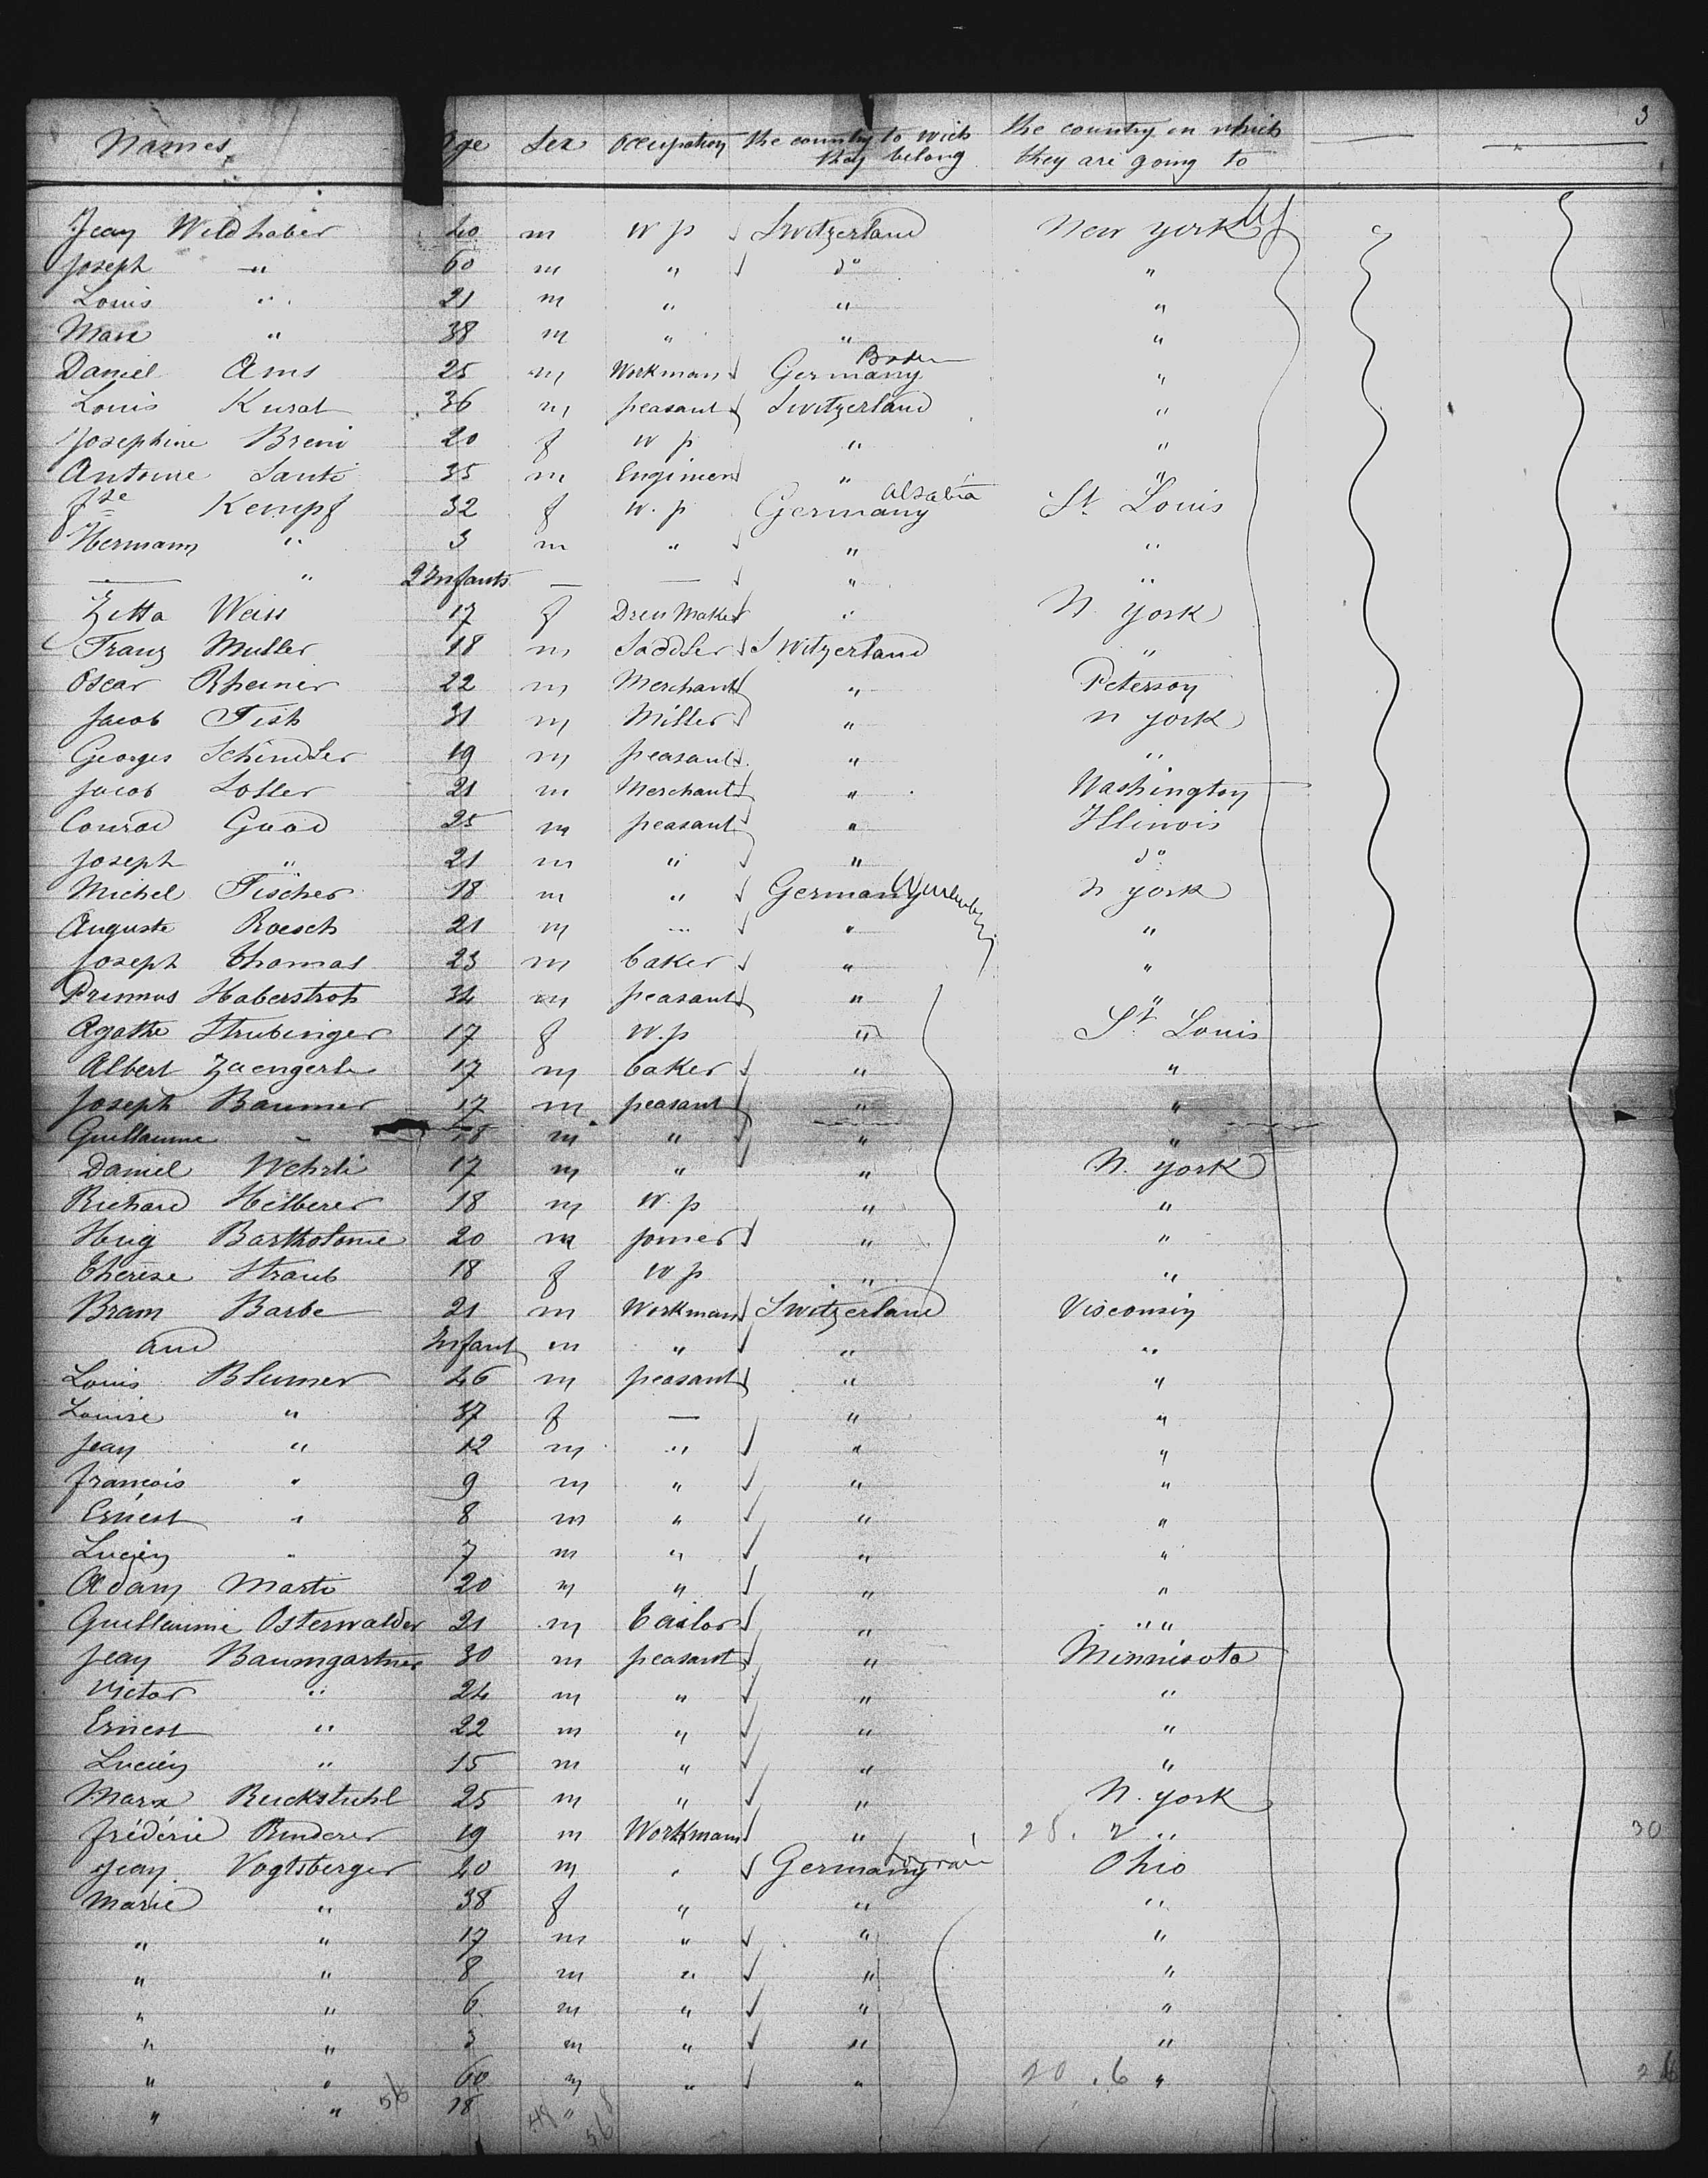 3
Names Age Sex Occupation the country to wich they belong the country in which they are going to
Jean Wildhaber 40 m w p Switzerland New york
Joseph " 60 m " do "
Louis " 21 m " " "
Marx " 38 m " " "
Daniel Ams 25 m Workman Germany Baden "
Louis Kurat 36 m peasant Switzerland "
Josephine Breni 20 f w p " "
Antoine Santi 35 m Engineer " "
Kempf 32 f w. p Germany alsatia St Louis
Hermann " 3 m " " "
— " 2 Infants — — " "
Zitta Weiss 17 f Dress Maker " N. york
Franz Muller 18 m Saddler Switzerland "
Oscar Rheiner 22 m Merchant " Peterson
Jacob Fish 31 m Miller " n york
Georges Schindler 19 m peasant " "
Jacob Loller 21 m Merchant " Washington
Conrad Good 25 m peasant " Illinois
Joseph " 21 m " " do
Michel Fischer 18 m " Germany n york
Auguste Roesch 21 m " " "
Joseph Thomas 23 m baker " "
Primus Haberstroh 34 m peasant " "
Agathe Strubinger 17 f w. p " St Louis
Albert Zaengerle 17 m baker " "
Joseph Baumer 17 m peasant " "
Guillaume " 18 m " " "
Daniel Wehrli 17 m " " N. york
Richard Hilberer 18 m w. p " "
Hug Bartholome 20 m joiner " "
Therese Straub 18 f w p " "
Bram Barbe 21 m Workman Switzerland Visconsin
and Infant m " " "
Louis Blumer 46 m peasant " "
Louise " 37 f — " "
Jean " 12 m " " "
françois " 9 m " " "
Ernest " 8 m " " "
Lucien " 7 m " " "
Adam Marti 20 m " " "
Guillaume Osterwalder 21 m tailor " "
Jean Baumgartner 30 m peasant " Minnisota
Victor " 24 m " " "
Ernest " 22 m " " "
Lucien " 15 m " " "
Marx Ruckstuhl 25 m " " N. york
frédéric Binderer 19 m Workman " 28. 2 " 30
Jean Vogtsberger 40 m " Germany Lorrain Ohio
Marie " 38 f " " "
" " 17 m " " "
" " 8 m " " "
" " 6 m " " "
" " 3 m " " "
" " 60 m " " 20 . 6 " 26
" " 18 "
56 48 8
56